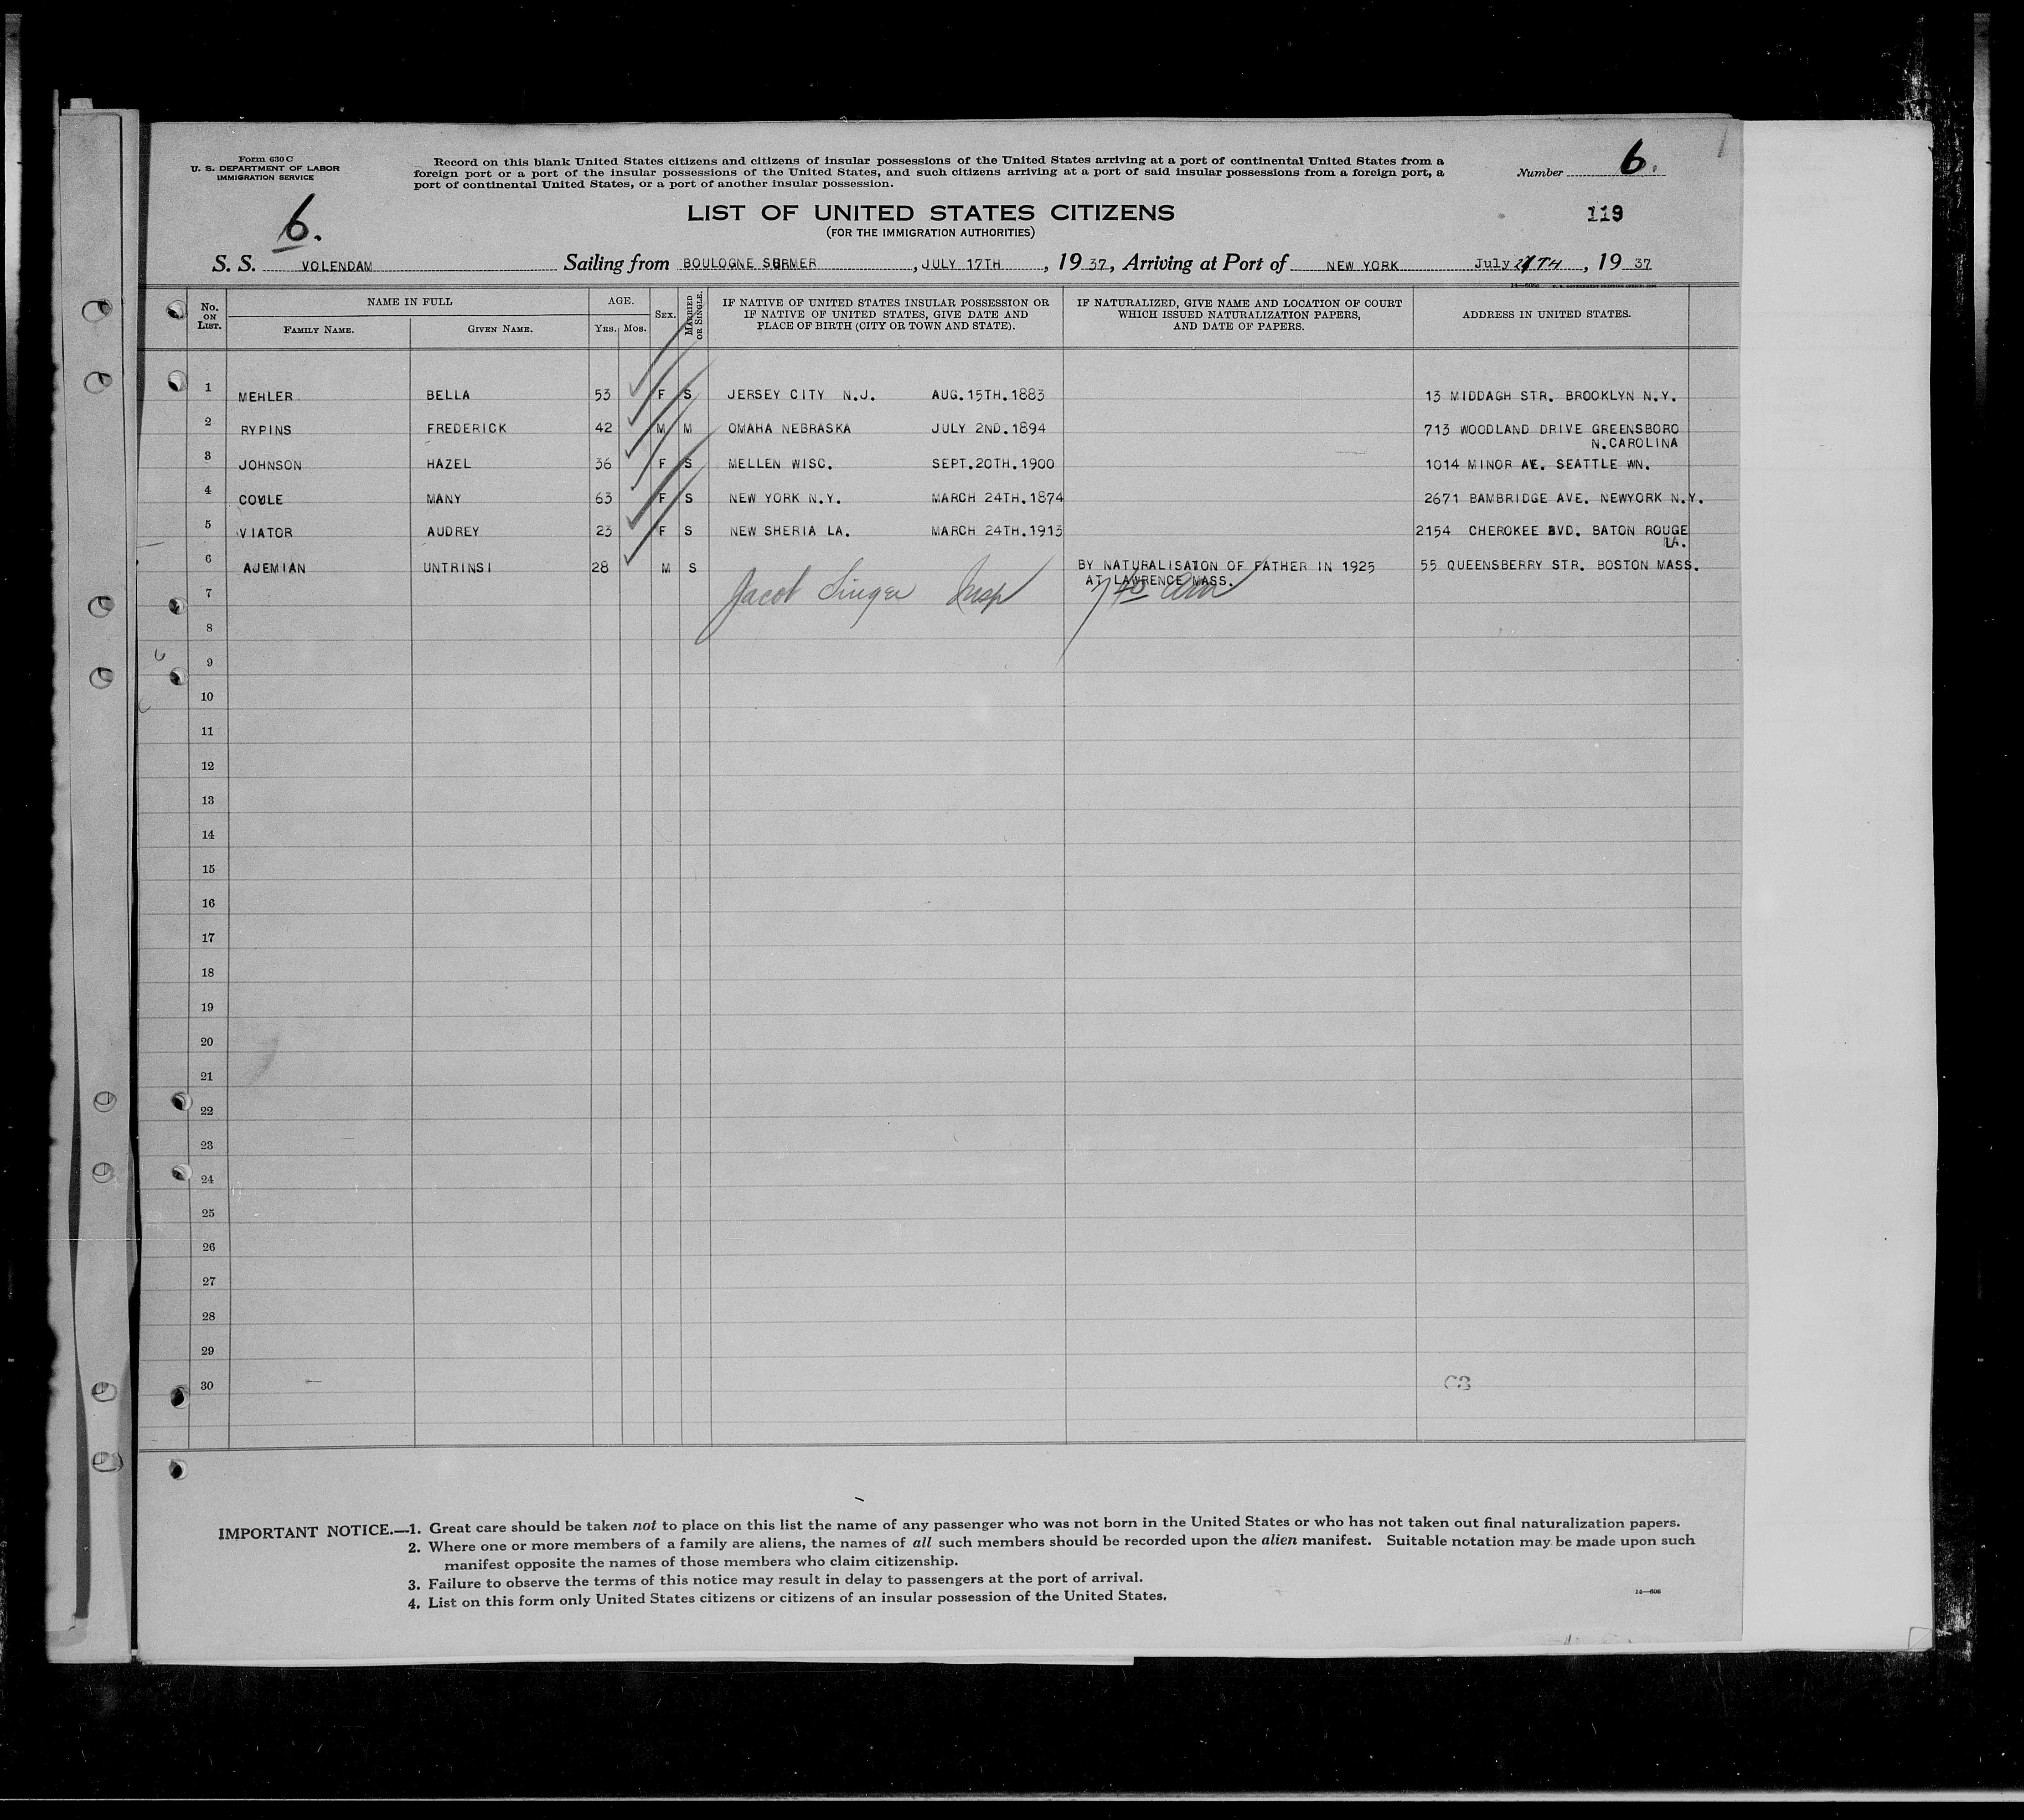 Form 630 C
U. S. DEPARTMENT OF LABOR
IMMIGRATION SERVICE
Record on this blank United States citizens and citizens of insular possessions of the United States arriving at a port of continental United States from a
foreign port or a port of the insular possessions of the United States, and such citizens arriving at a port of said insular possessions from a foreign port, a
port of continental United States, or a port of another insular possession.
Number 6.
6.
LIST OF UNITED STATES CITIZENS
(FOR THE IMMIGRATION AUTHORITIES)
119
S. S. VOLENDAM Sailing from BOULOGNE SURMER, JULY 17TH, 1937, Arriving at Port of NEW YORK July TH, 1937
No. ON LIST.
NAME IN FULL
FAMILY NAME.
GIVEN NAME.
AGE.
YRS. MOS.
SEX.
MARRIED OR SINGLE.
IF NATIVE OF UNITED STATES INSULAR POSSESSION OR
IF NATIVE OF UNITED STATES, GIVE DATE AND
PLACE OF BIRTH (CITY OR TOWN AND STATE).
IF NATURALIZED, GIVE NAME AND LOCATION OF COURT
WHICH ISSUED NATURALIZATION PAPERS,
AND DATE OF PAPERS.
ADDRESS IN UNITED STATES.
1 MEHLER BELLA 53 F S JERSEY CITY N.J. AUG.15TH.1883 13 MIDDAGH STR. BROOKLYN N.Y.
2 RYPINS FREDERICK 42 M M OMAHA NEBRASKA JULY 2ND.1894 713 WOODLAND DRIVE GREENSBORO
N.CAROLINA
3 JOHNSON HAZEL 36 F S MELLEN WISC. SEPT.20TH.1900 1014 MINOR AVE. SEATTLE WN.
4 COULE MANY 63 F S NEW YORK N.Y. MARCH 24TH.1874 2671 BAMBRIDGE AVE. NEWYORK N.Y.
5 VIATOR AUDREY 23 F S NEW SHERIA LA. MARCH 24TH.1913 2154 CHEROKEE BVD. BATON ROUGE
LA.
6 AJEMIAN UNTRINSI 28 M S BY NATURALISATION OF FATHER IN 1925 55 QUEENSBERRY STR. BOSTON MASS.
AT LAWRENCE MASS.
7 Jacob Singer Insp 7 40 am
8
9
10
11
12
13
14
15
16
17
18
19
20
21
22
23
24
25
26
27
28
29
30
IMPORTANT NOTICE.—1. Great care should be taken not to place on this list the name of any passenger who was not born in the United States or who has not taken out final naturalization papers.
2. Where one or more members of a family are aliens, the names of all such members should be recorded upon the alien manifest. Suitable notation may be made upon such
manifest opposite the names of those members who claim citizenship.
3. Failure to observe the terms of this notice may result in delay to passengers at the port of arrival.
4. List on this form only United States citizens or citizens of an insular possession of the United States.
14—606